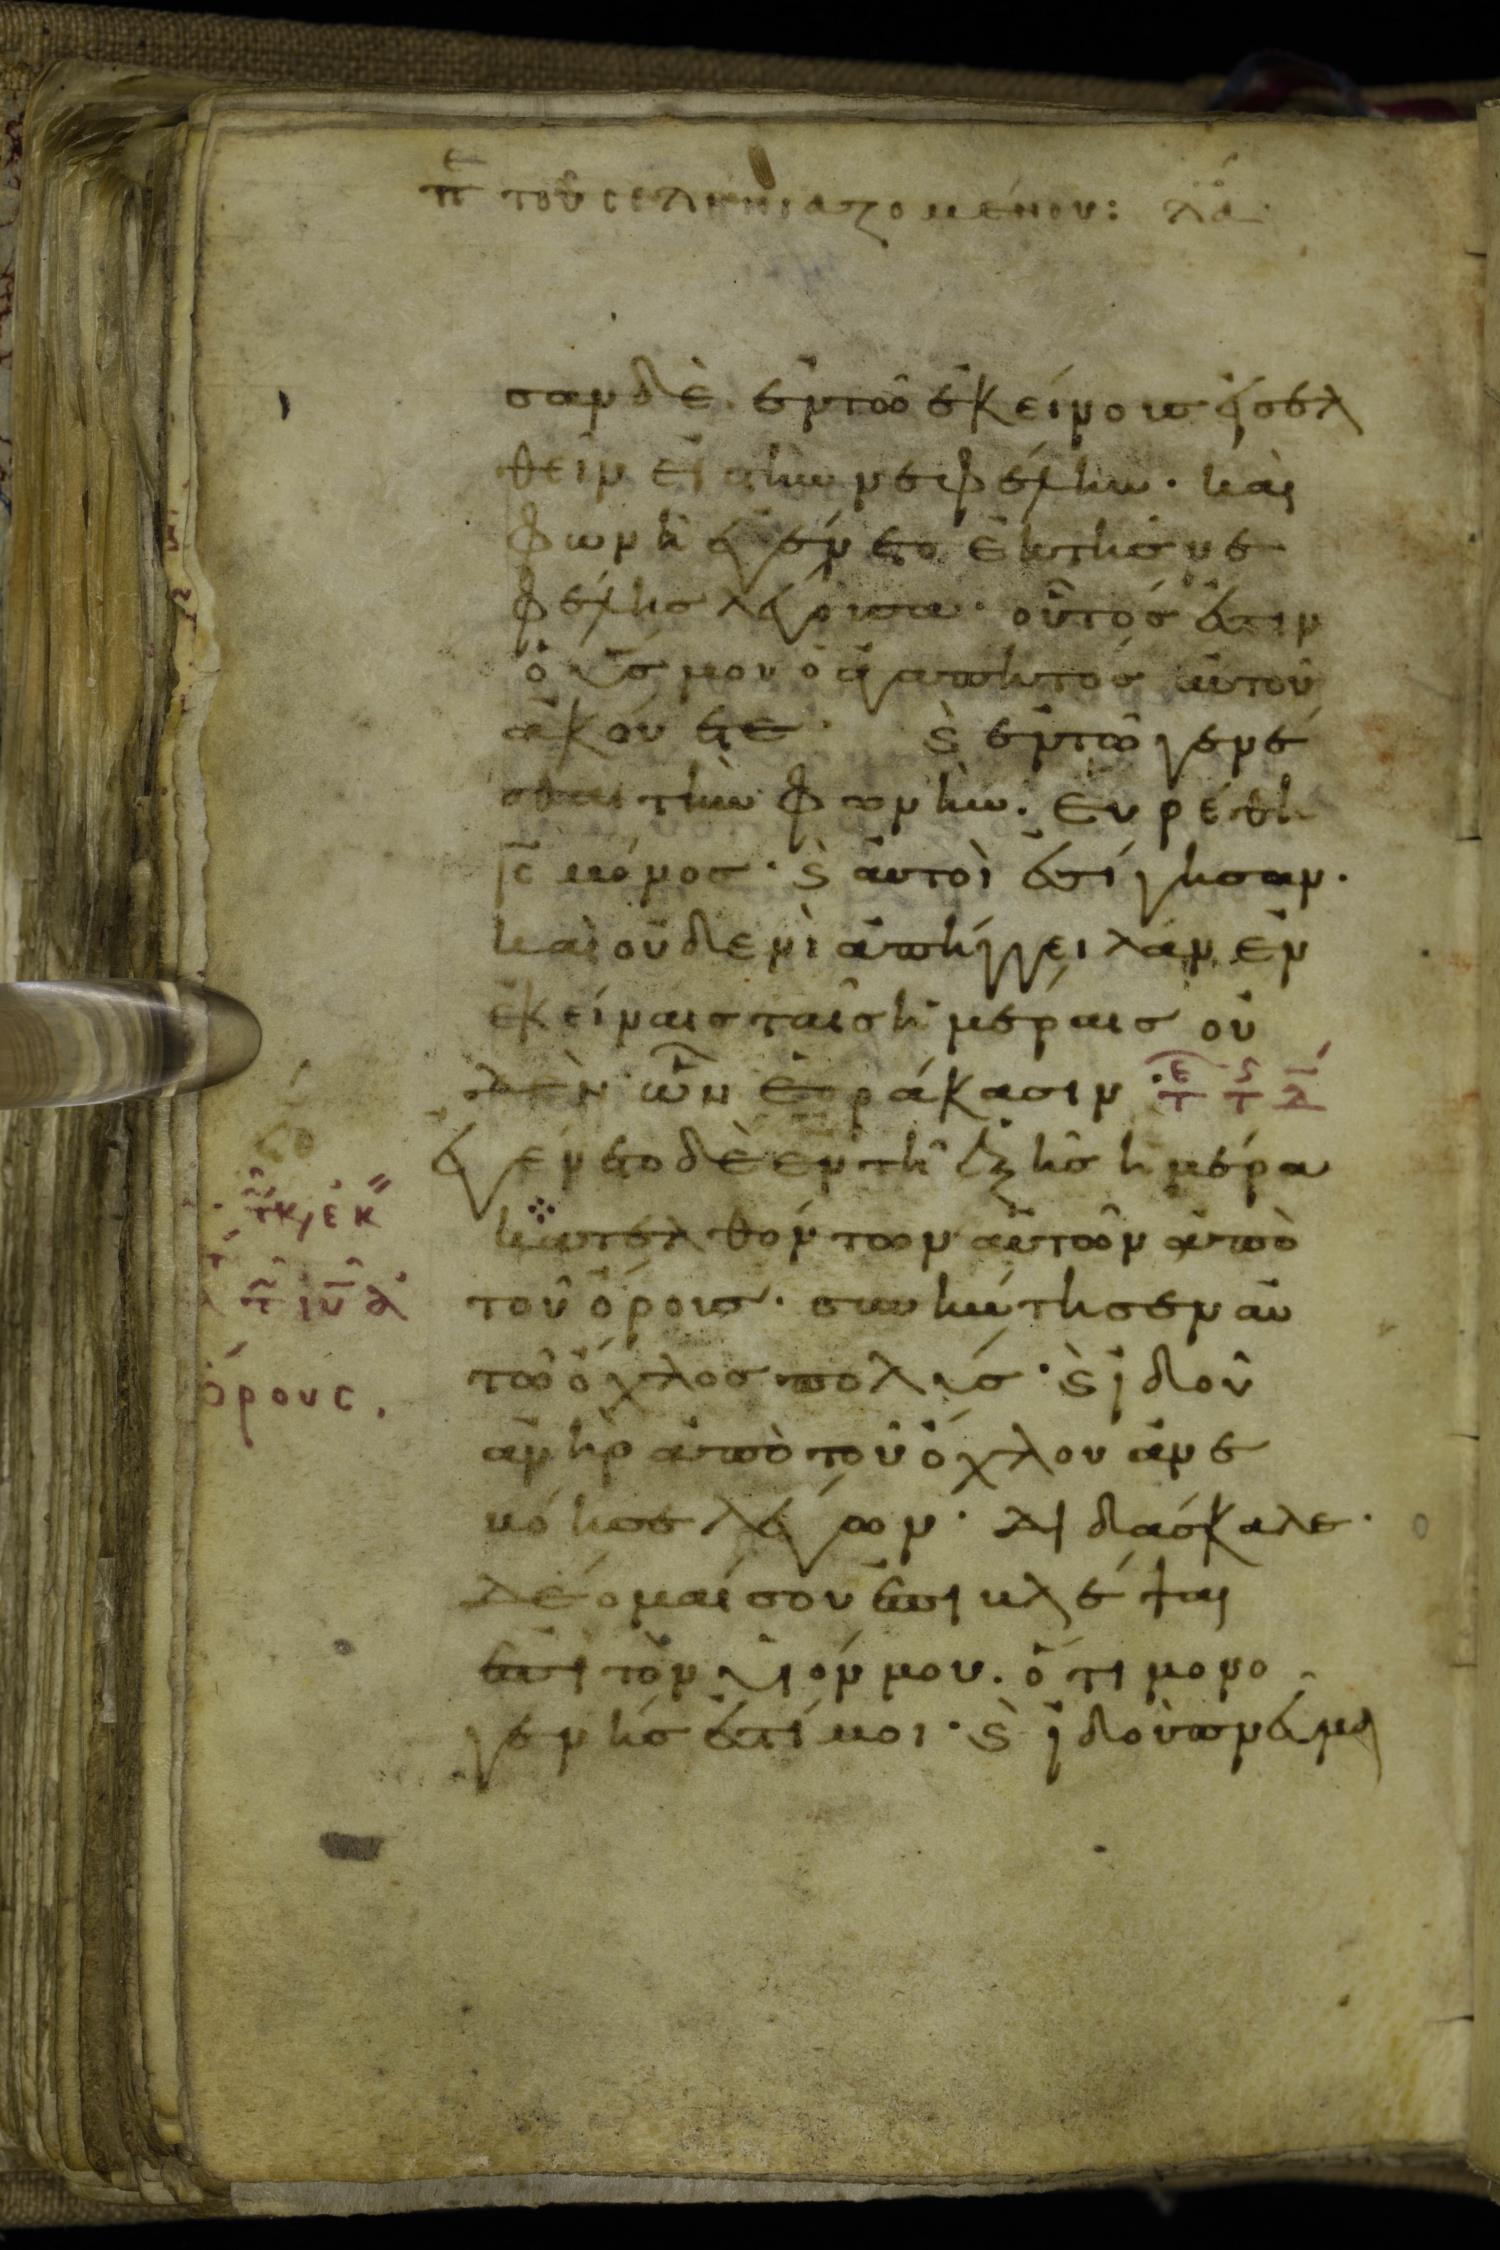 πε τοῦ σεληνιαζομένου: λα
σαν δὲ ἐν τῶ ἐκείνους εἰσελ
θεῖν εἰς τὴν νεφέλην · καὶ
φωνὴ ἐγένετο ἐκ τῆς νε
φέλης λέγουσα · οὗτός ἐστιν
ὁ υς μου ὁ ἀγαπητός αὐτοῦ
ἀκούετε · ϗ ἐν τῶ γενέ
σθαι τὴν φωνὴν · εὑρέθη
ις μόνος · ϗ αὐτοὶ ἐσίγησαν ·
καὶ οὐδενὶ ἀπήγγειλαν ἐν
ἐκείναις ταῖς ἡμέραις οὐ
δὲν ὧν ἑοράκασιν ·
ἐγένετο δὲ ἐν τῆ ἑξῆς ἡμέρα
κατελθόντων αὐτῶν ἀπὸ
τοῦ ὄρους · συνήντησεν αὐ
τῶ ὄχλος πολύς · ϗ ἰδοὺ
ἀνὴρ ἀπὸ τοῦ ὄχλου ἀνε
βόησε λέγων · Διδάσκαλε ·
Δέομαί σου ἐπιβλέψαι
ἐπὶ τὸν υἱόν μου · ὅτι μονο
γενής ἐστί μοι · ϗ ἰδοὺ πνεῦμα
ὄρους .